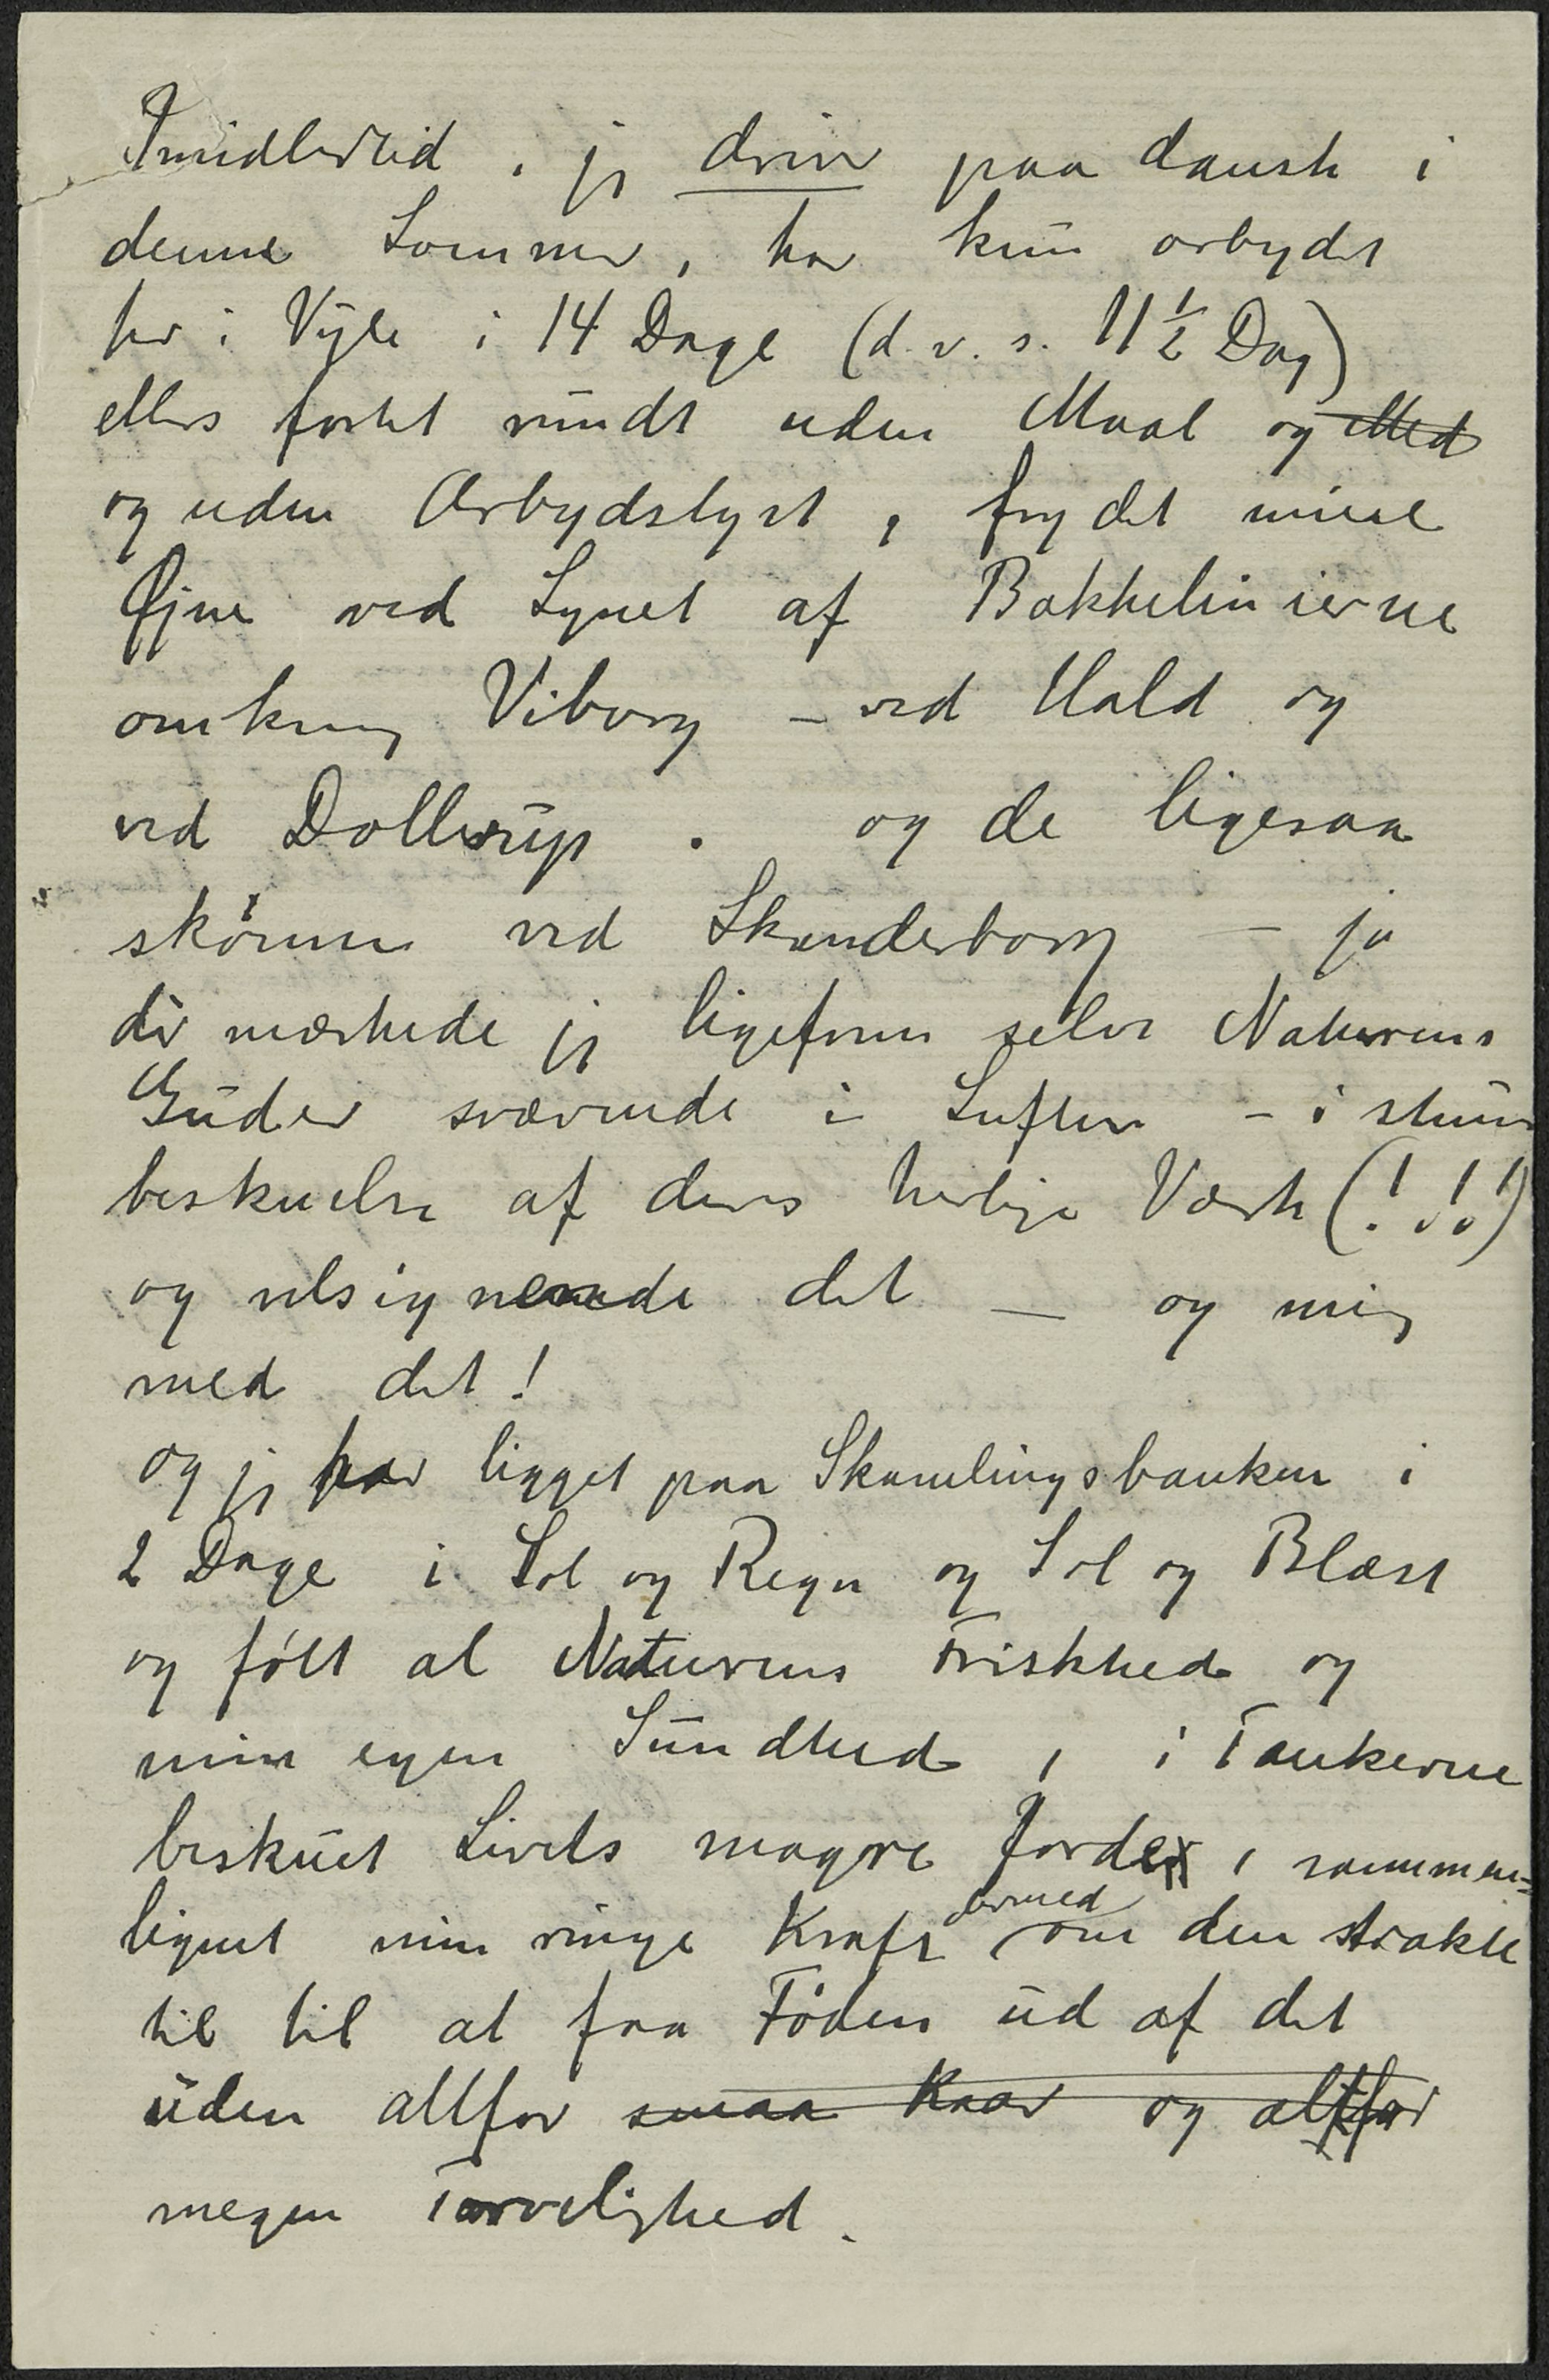 Imidlertid, jeg driver paa dansk i
denne Sommer, har kun arbejdet
her i Vejle i 14 Dage (d. v. s. 11½ Dag)
ellers fartet rundt uden Maal og Med
og uden Arbejdslyst, frydet mine
Øjne ved Synet af Bakkelinierne
omkring Viborg – ved Hald og
ved Dollerup. og de ligesaa
skönne ved Skanderborg – ja
dér mærkede jeg ligefrem selve Naturens
Guder svævende i Luften – i stum
beskuelse af deres herlige Værk (!!!)
og velsignende det — og mig
med det!
og jeg har ligget paa Skamlingsbanken i
2 Dage i Sol og Regn og Sol og Blæst
og fölt al Naturens Friskhed og
min egen Sundhed, i Tankerne
beskuet Livets magre Jorder, sammen=
lignet min ringe Kraft dermed om den strakte
til til at faa Föden ud af det
uden altfor smaa Kaar og altfor
megen Tarvelighed.